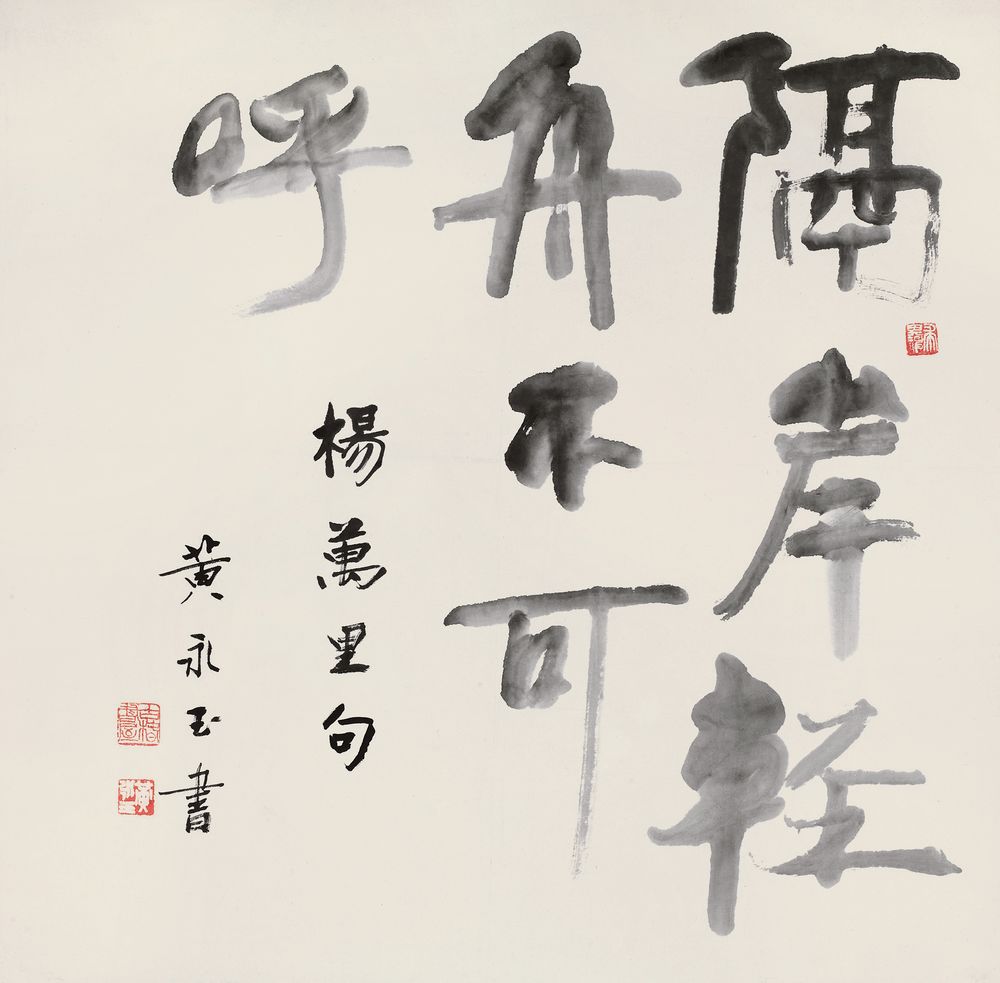 隔岸輕
舟不可
呼
楊萬里句
黄永玉書